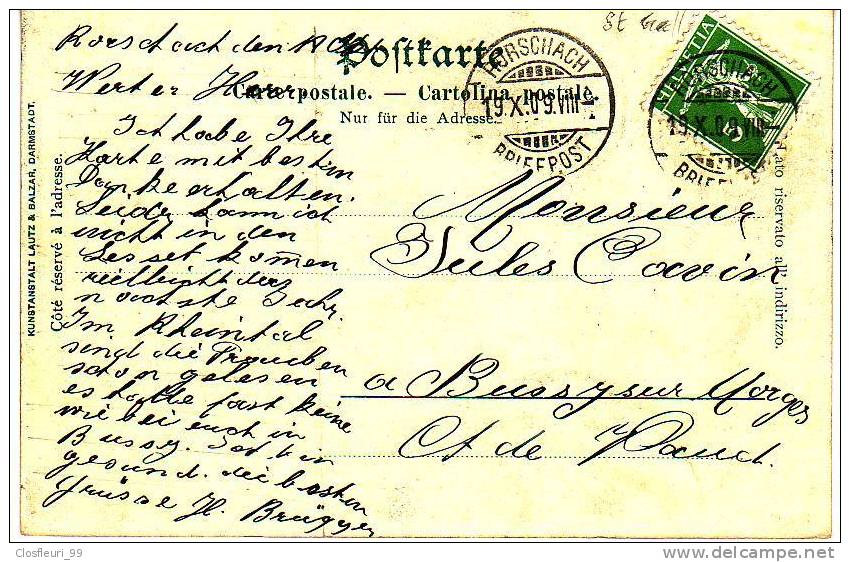 St Gall
Rorschach den
Postkarte
Carte postale. — Cartolina postale.
Nur für die Adresse.
RORSCHACH
19.X.09.VIII—
BRIEFPOST
HELVETIA
5
RORSCHACH
19.X.09.VIII—
BRIEFPOST
KUNSTANSTALT LAUTZ & BALZAR, DARMSTADT.
Côté réservé à l'adresse.
Lato riservato all' indirizzo.
Werter Herr
Ich habe Ihre
Karte mit bestin
Dank erhalten.
Leider kann ich
nicht in den
komen
vielleicht das
nochste Jahr.
Im Rheintal
singt die Trauben
schon gelesen
es hatte fast keine
wie bei euch in
Bussy.
gesund. die besten
Grüsse H. Brügger
Monsieur
Jules Cavin
a Bussy sur Morges
Ct de Vaud.
Closfleuri_99
delcampe.net